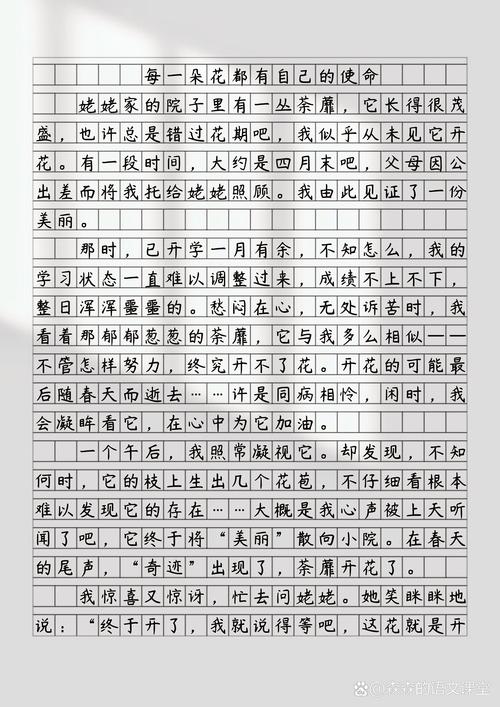 每一朵花都有自己的使命
姥姥家的院子里有一丛荼蘼，它长得很茂
盛，也许总是错过花期吧，我似乎从未见它开
花。有一段时间，大约是四月末吧，父母因公
出差而将我托给姥姥照顾。我由此见证了一份
美丽。
那时，已开学一月有余，不知怎么，我的
学习状态一直难以调整过来，成绩不上不下，
整日浑浑噩噩的。愁闷在心，无处诉苦时，我
看着那郁郁葱葱的荼蘼，它与我多么相似——
不管怎样努力，终究开不了花。开花的可能最
后随春天而逝去……许是同病相怜，闲时，我
会凝眸看它，在心中为它加油。
一个午后，我照常凝视它。却发现，不知
何时，它的枝上生出几个花苞，不仔细看根本
难以发现它的存在……大概是我心声被上天听
闻了吧，它终于将“美丽”散向小院。在春天
的尾声，“奇迹”出现了，荼蘼开花了。
我惊喜又惊讶，忙去问姥姥。她笑眯眯地
说：“终于开了，我就说得等吧，这花就是开
森森的语文课堂